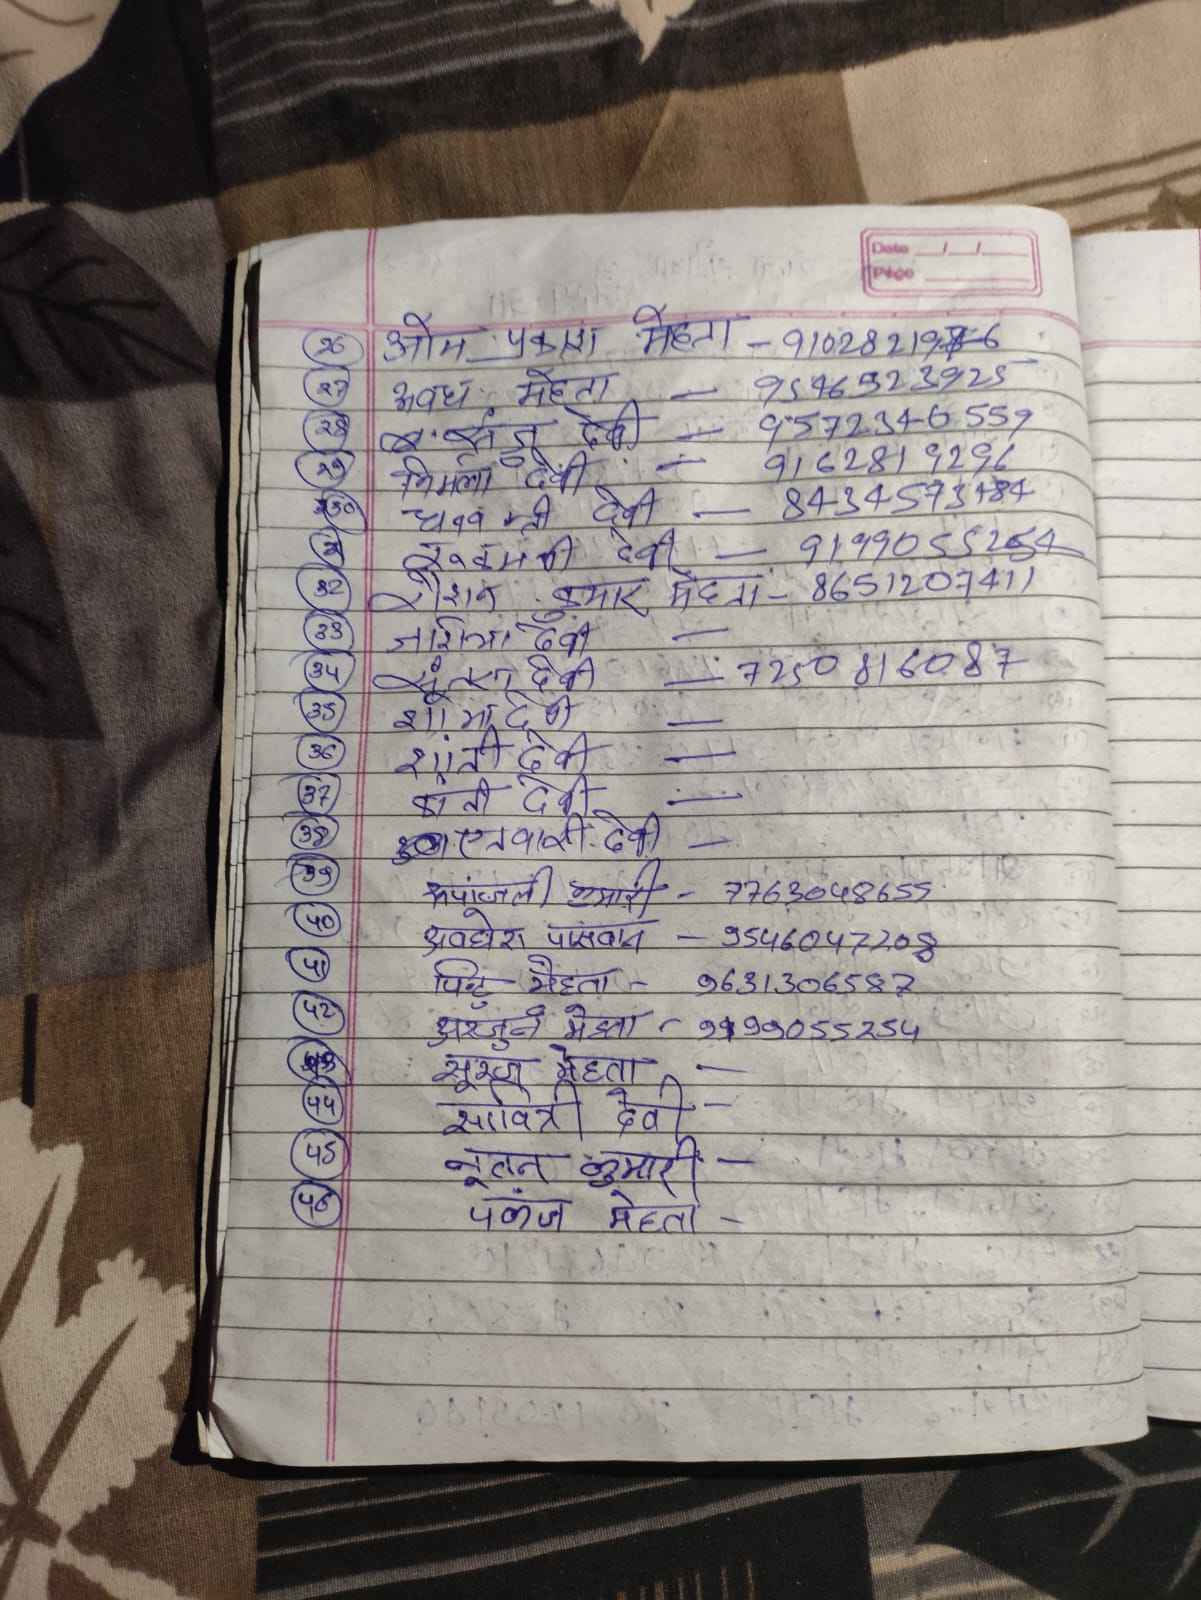 Date __/__/__
Page
26 ओम प्रकाश मेहता - 91028219
27 अवध मेहता - 9546923925
28 मंजु देवी - 9572346559
29 निर्मला देवी - 9162819296
30 देवी - 8434573184
31 देवी - 9199055254
32 रौशन कुमार मेहता - 8651207411
33 देवी -
34 देवी - 7250816087
35 देवी -
36 शांती देवी -
37 देवी -
38 देवी -
39 रूपांजली कुमारी - 7763048655
40 अवधेश पासवान - 9546047208
41 पिन्टु मेहता - 9631306587
42 अरजुन मेहता - 9199055254
43 सूरज मेहता -
44 सावित्री देवी -
45 नूतन कुमारी -
46 पंकज मेहता -